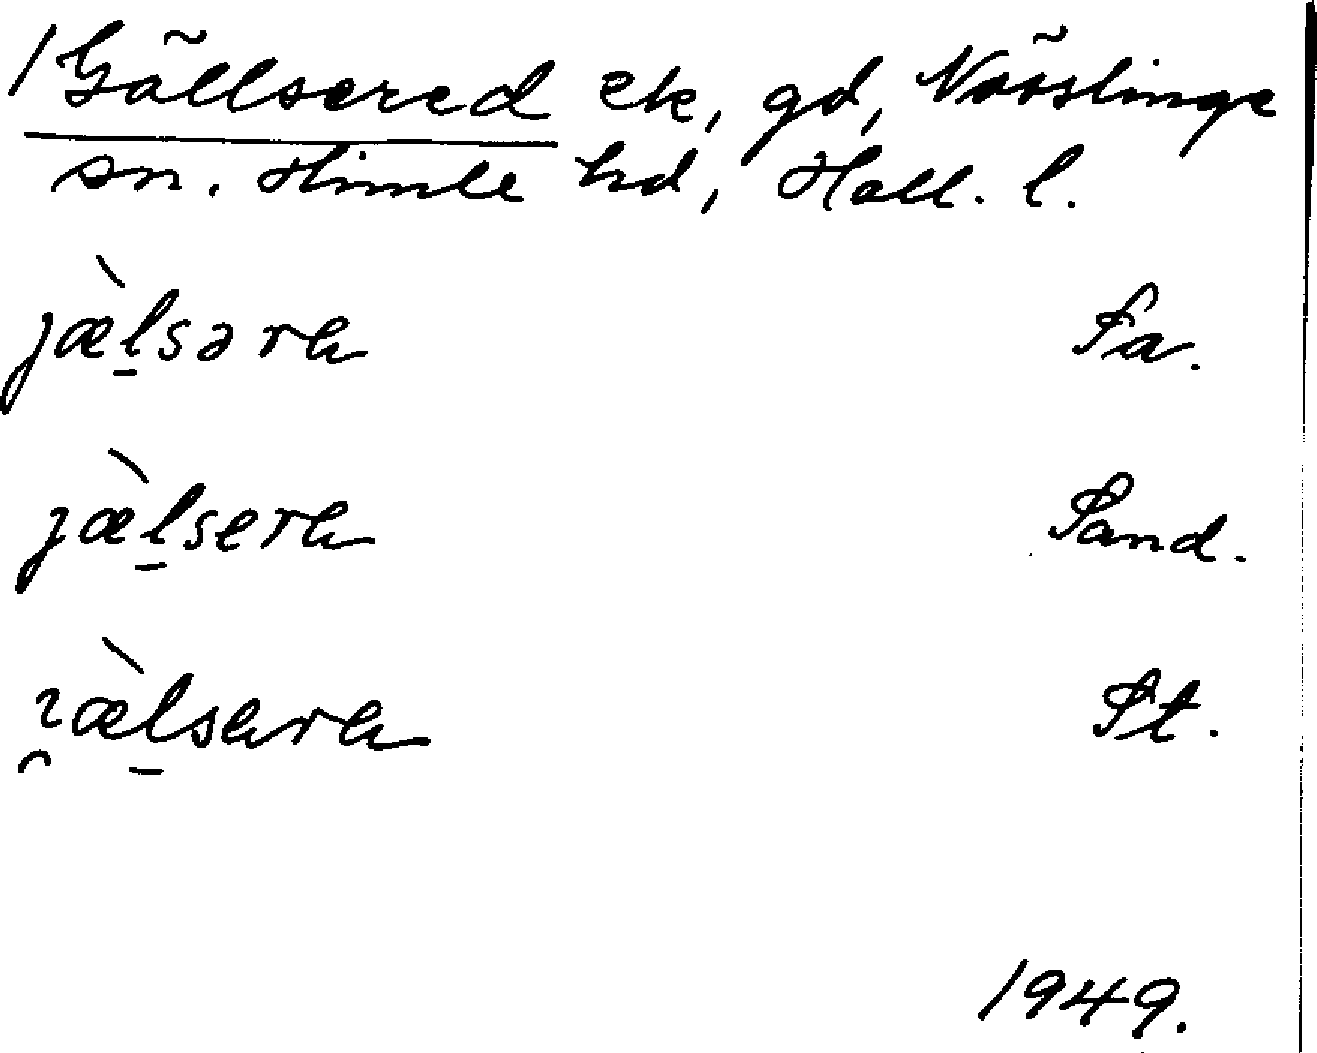 /Gällsered ek, gd, Nösslinge
sn. Himle hd, Hall. l.
jæ̀l̠səra Fa.
jæ̀l̠sera Sand.
ɂæ̀l̠sera St.
1949.